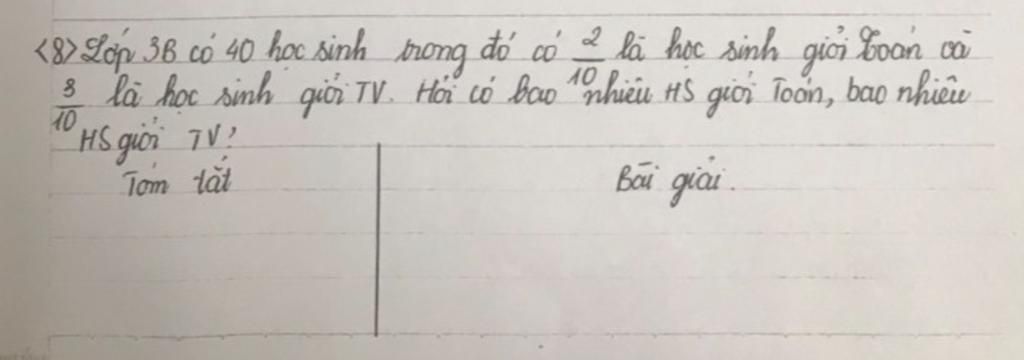 <8> Lớp 3B có 40 học sinh trong đó có 2/10 là học sinh giỏi Toán và
3/10 là học sinh giỏi TV. Hỏi có bao nhiêu HS giỏi Toán, bao nhiêu
HS giỏi TV?
Tóm tắt
Bài giải.